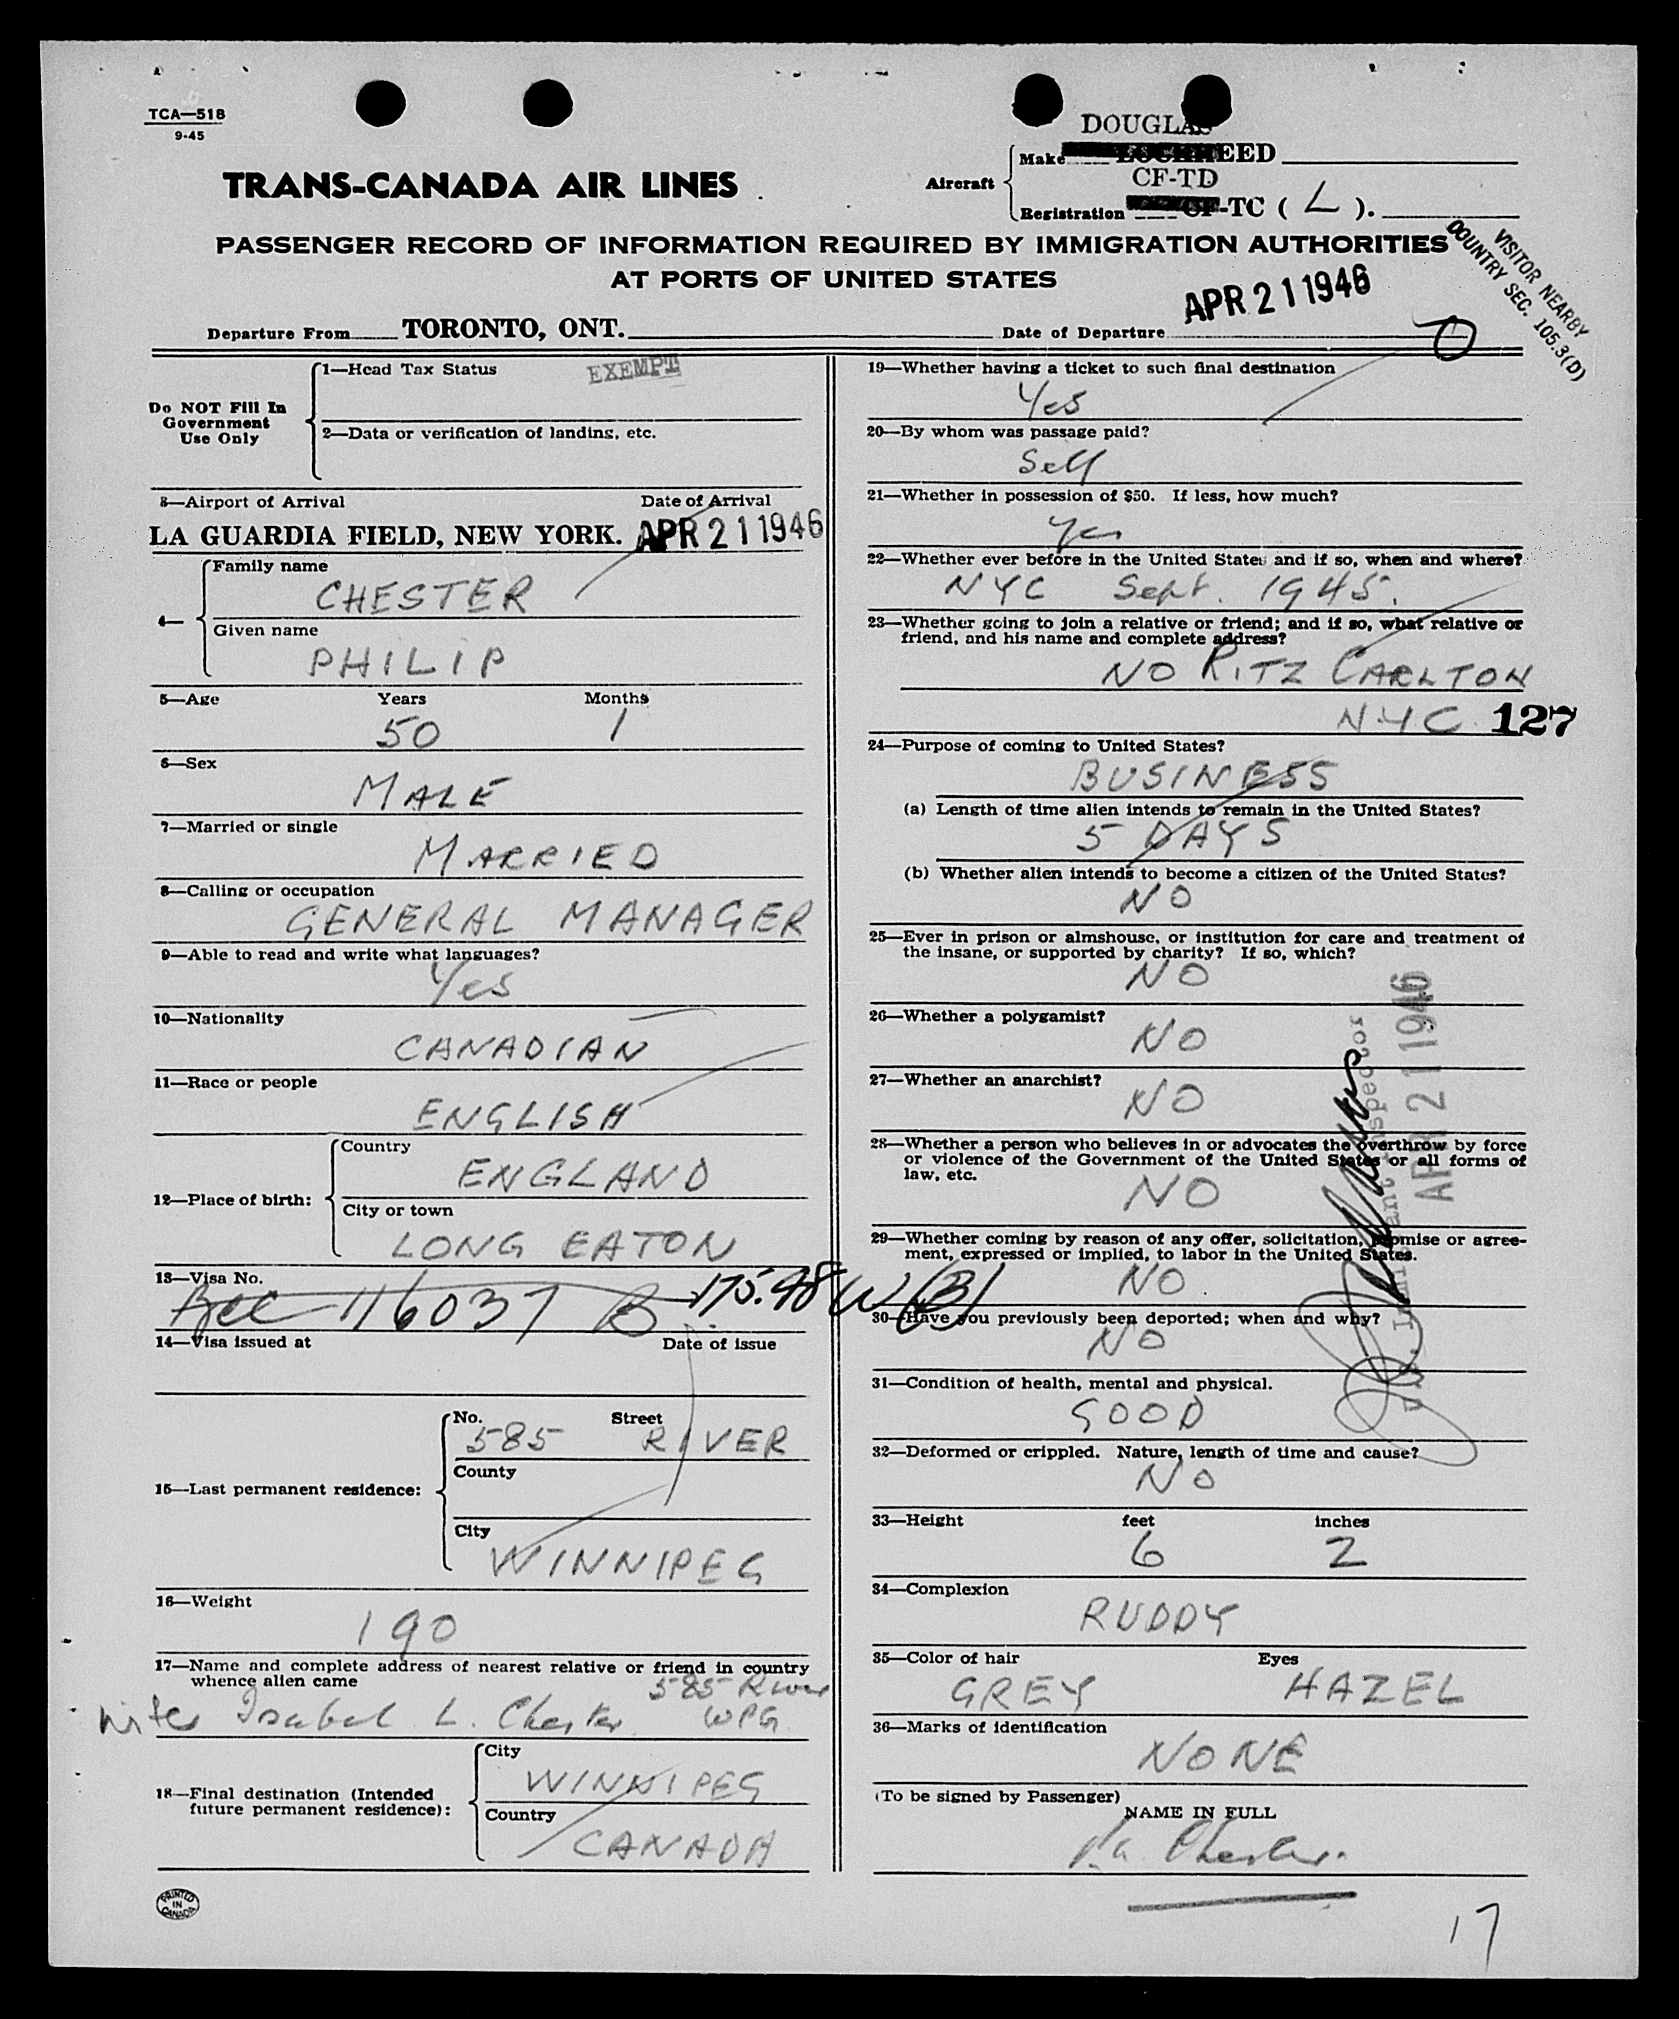 TCA—518
9-45
DOUGLAS
Aircraft
Make LOCKHEED
CF-TD
Registration CF-TC ( L ).
TRANS-CANADA AIR LINES
PASSENGER RECORD OF INFORMATION REQUIRED BY IMMIGRATION AUTHORITIES
AT PORTS OF UNITED STATES
VISITOR NEARBY
COUNTRY SEC. 105.3(D)
Departure From TORONTO, ONT.
Date of Departure APR 21 1946
Do NOT Fill In
Government
Use Only
1—Head Tax Status EXEMPT
2—Data or verification of landing, etc.
3—Airport of Arrival Date of Arrival
LA GUARDIA FIELD, NEW YORK. APR 21 1946
4—
Family name
CHESTER
Given name
PHILIP
5—Age Years Months
50 1
6—Sex
MALE
7—Married or single
MARRIED
8—Calling or occupation
GENERAL MANAGER
9—Able to read and write what languages?
Yes
10—Nationality
CANADIAN
11—Race or people
ENGLISH
12—Place of birth:
Country
ENGLAND
City or town
LONG EATON
13—Visa No.
Bcc 116037 B 175.98 W (B)
14—Visa issued at Date of issue
15—Last permanent residence:
No. Street
585 RIVER
County
City
WINNIPEG
16—Weight
190
17—Name and complete address of nearest relative or friend in country
whence alien came
585 River
wife Isabel L. Chester WPG
18—Final destination (Intended
future permanent residence):
City
WINNIPEG
Country
CANADA
PRINTED
IN
CANADA
19—Whether having a ticket to such final destination
Yes
20—By whom was passage paid?
Self
21—Whether in possession of $50. If less, how much?
Yes
22—Whether ever before in the United States and if so, when and where?
NYC Sept. 1945.
23—Whether going to join a relative or friend; and if so, what relative or
friend, and his name and complete address?
NO RITZ CARLTON
NYC 127
24—Purpose of coming to United States?
BUSINESS
(a) Length of time alien intends to remain in the United States?
5 DAYS
(b) Whether alien intends to become a citizen of the United States?
NO
25—Ever in prison or almshouse, or institution for care and treatment of
the insane, or supported by charity? If so, which?
NO
26—Whether a polygamist?
NO
27—Whether an anarchist?
NO
28—Whether a person who believes in or advocates the overthrow by force
or violence of the Government of the United States or all forms of
law, etc.
NO
29—Whether coming by reason of any offer, solicitation, promise or agree-
ment, expressed or implied, to labor in the United States.
NO
30—Have you previously been deported; when and why?
NO
31—Condition of health, mental and physical.
GOOD
32—Deformed or crippled. Nature, length of time and cause?
NO
33—Height feet inches
6 2
34—Complexion
RUDDY
35—Color of hair Eyes
GREY HAZEL
36—Marks of identification
NONE
(To be signed by Passenger)
NAME IN FULL
P.A. Chester.
APR 21 1946
Inspector
17